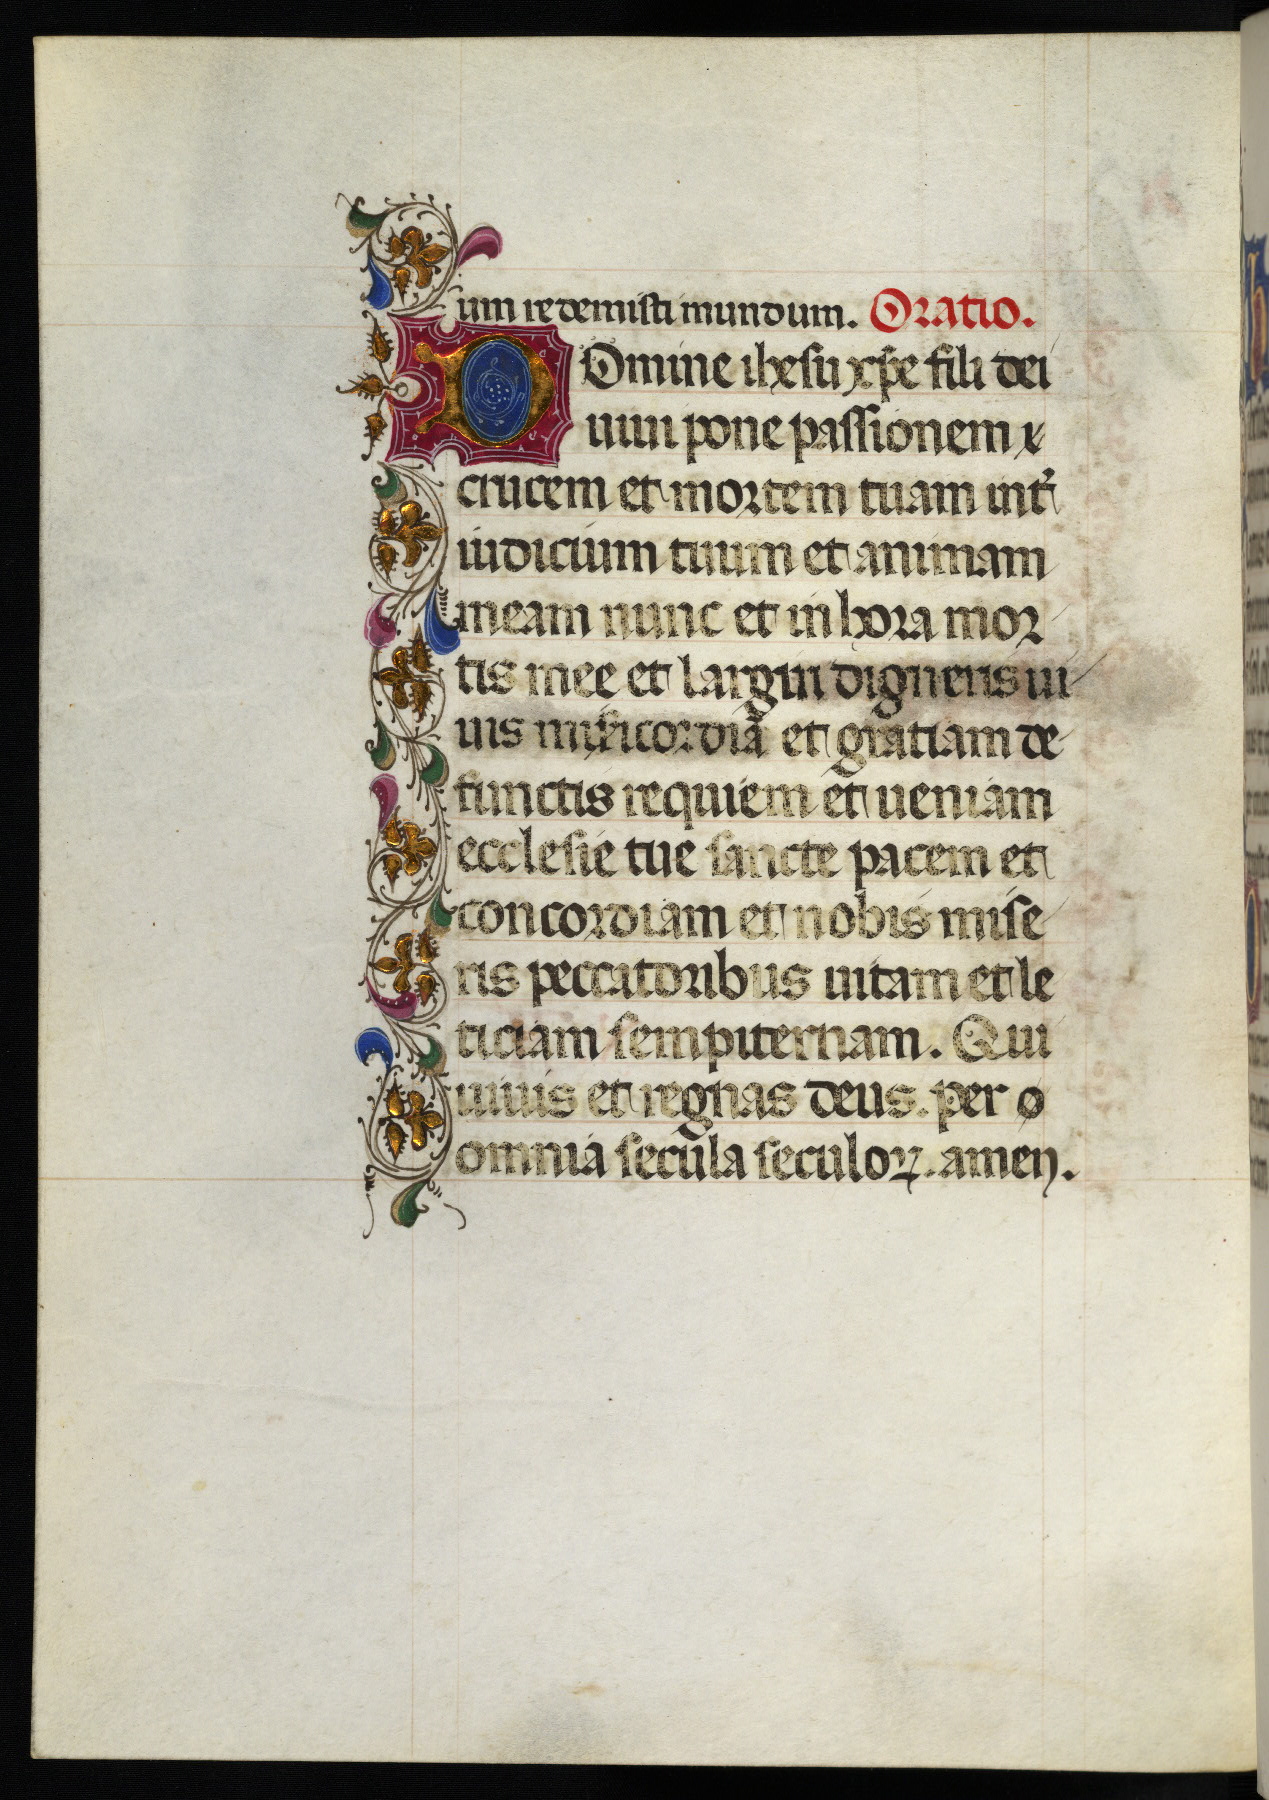 um redemisti mundum. Oratio.
Domine ihesu xp̄e fili dei
uiui pone passionem ⁊
crucem et mortem tuam int̄
iudicium tuum et animam
meam nunc et in hora mor
tis mee et largiri digneris ui
uis mīsicordiā et gratiam de
functis requiem et ueniam
ecclesie tue sancte pacem et
concordiam et nobis mise
ris peccatoribus uitam et le
ticiam sempiternam. Qui
uiuis et regnas deus. per o
omnia secula seculoꝝ. amen.